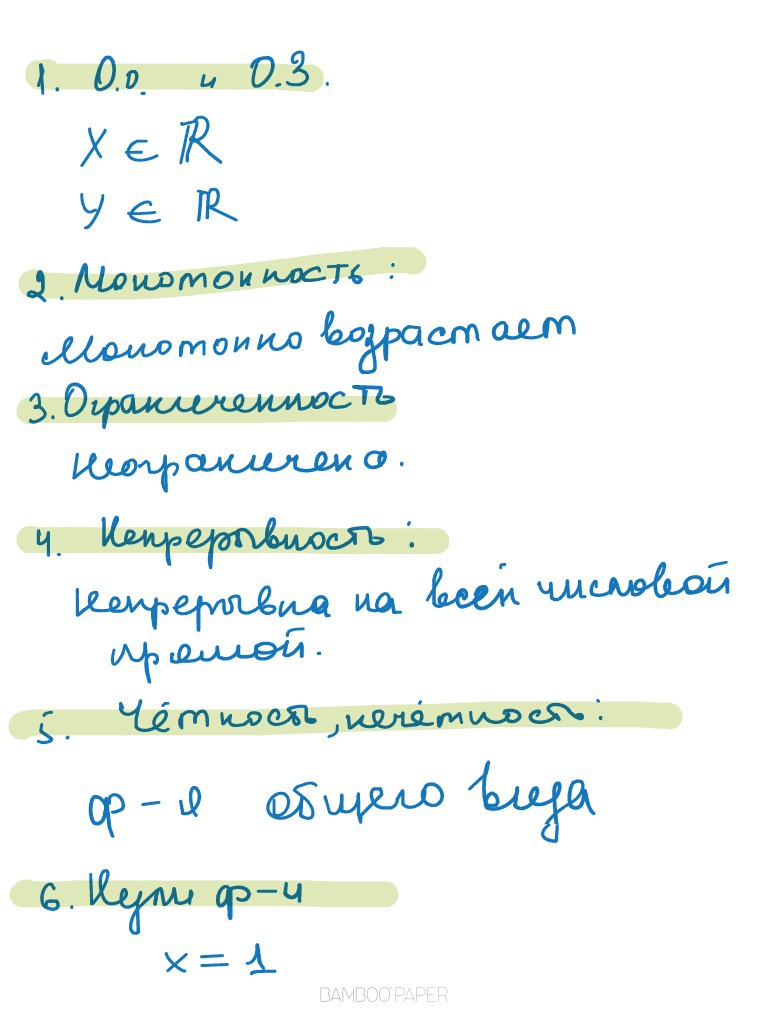 1. О.о. и О.З.
X ∈ ℝ
У ∈ ℝ
2. Монотонность:
Монотонно возрастает
3. Ограниченность
Неограничена.
4. Непрерывность:
Непрерывна на всей числовой
прямой.
5. Чётность, нечётность:
ф-я общего вида
6. Нули ф-и
x = 1
BAMBOO PAPER